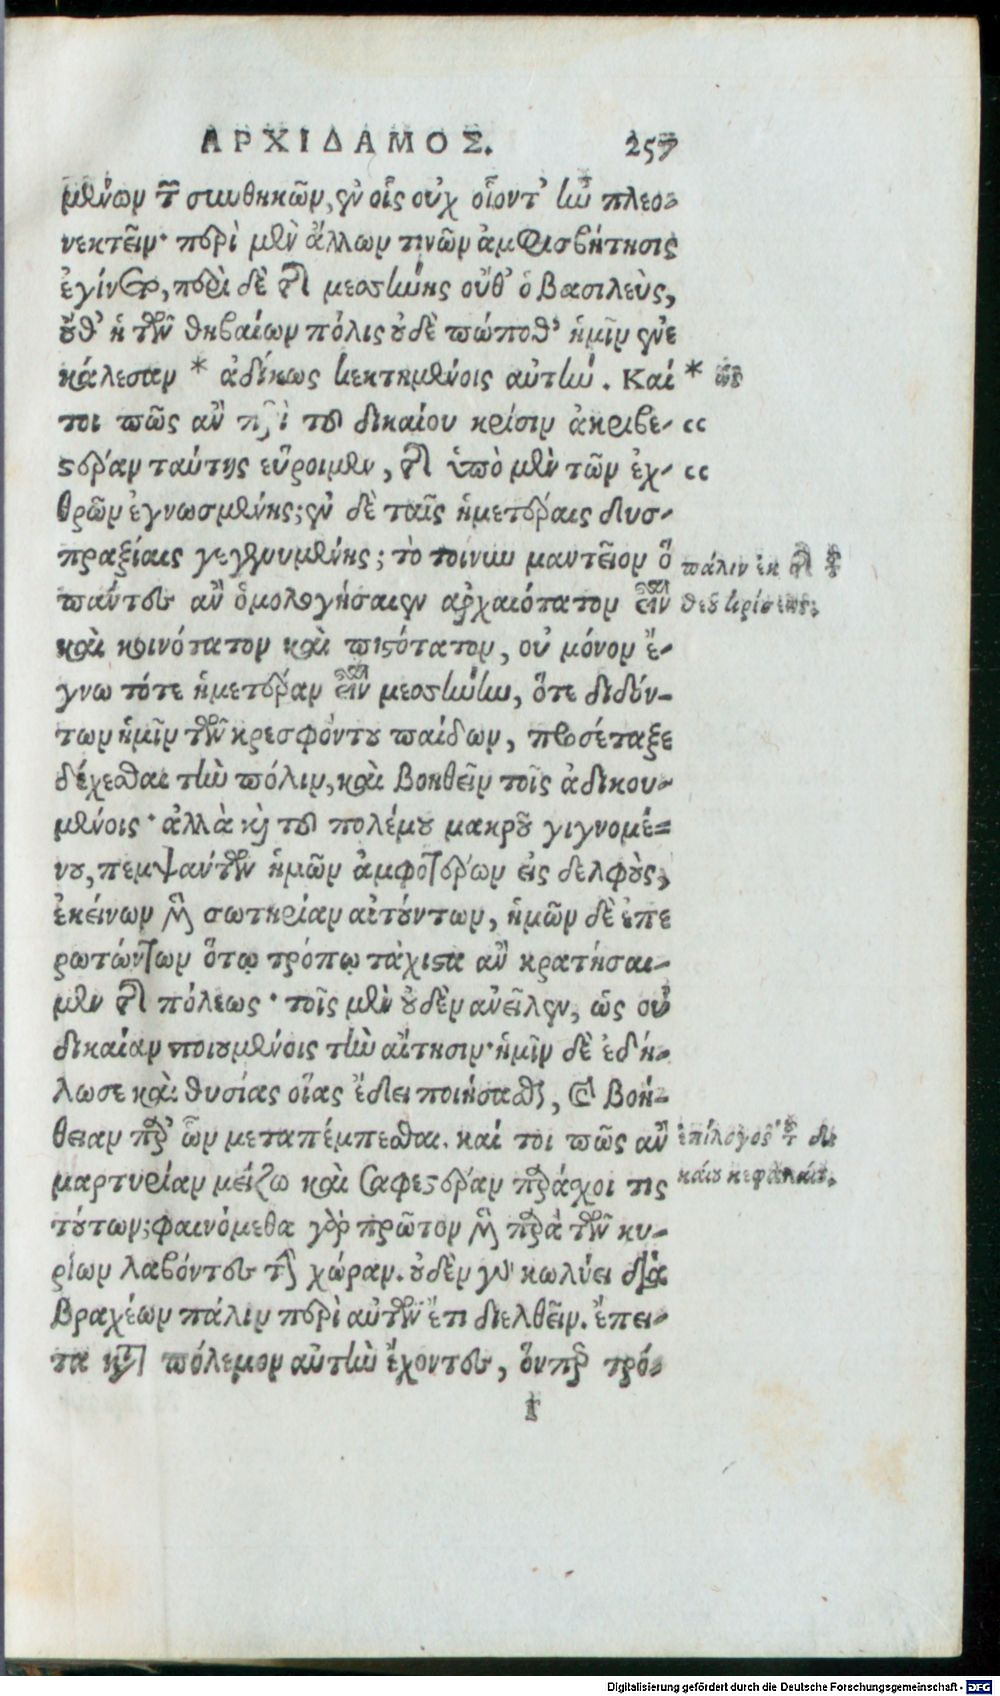 ΑΡΧΙΔΑΜΟΣ. 257
μένων τ̃ συνθηκῶν, ἐν οἷς οὐχ οἷοντ' ἦν πλεο-
νεκτεῖν· περὶ μὲν ἄλλων τινῶν ἀμφισβήτησις
ἐγίνετο, περὶ δὲ τῆς μεσσήνης οὔθ' ὁ βασιλεὺς,
οὔθ' ἡ τῶν θηβαίων πόλις οὐδὲ πώποθ' ἡμῖν ἐνε
κάλεσαν * ἀδίκως κεκτημένοις αὐτήν. Καί * ὡς
τοι πῶς ἂν περὶ τοῦ δικαίου κρίσιν ἀκριβε- "
στέραν ταύτης εὕροιμεν, τῆς ὑπὸ μὲν τῶν ἐχ- "
θρῶν ἐγνωσμένης; ἐν δὲ ταῖς ἡμετέραις δυσ-
πραξίαις γεγενημένης; τὸ τοίνυν μαντεῖον ὃ
πάντες ἂν ὁμολογήσαιεν ἀρχαιότατον εἶναι
καὶ κοινότατον καὶ πιστότατον, οὐ μόνον ἔ-
γνω τότε ἡμετέραν εἶναι μεσσήνην, ὅτε διδόν-
των ἡμῖν τῶν κρεσφόντου παίδων, προσέταξε
δέχεσθαι τὴν πόλιν, καὶ βοηθεῖν τοῖς ἀδικου-
μένοις· ἀλλὰ καὶ τοῦ πολέμου μακροῦ γιγνομέ-
νου, πεμψάντων ἡμῶν ἀμφοτέρων εἰς δελφοὺς,
ἐκείνων μὲν σωτηρίαν αἰτούντων, ἡμῶν δὲ ἐπε
ρωτώντων ὅτῳ τρόπῳ τάχιστα ἂν κρατήσαι-
μεν τῆς πόλεως· τοῖς μὲν οὐδὲν ἀνεῖλεν, ὡς οὐ
δικαίαν ποιουμένοις τὴν αἴτησιν· ἡμῖν δὲ ἐδή-
λωσε καὶ θυσίας οἵας ἔδει ποιήσασθαι, καὶ βοή-
θειαν παρ' ὧν μεταπέμπεσθαι. καί τοι πῶς ἂν
μαρτυρίαν μείζω καὶ σαφεστέραν παράσχοι τις
τούτων; φαινόμεθα γὰρ πρῶτον μὲν παρὰ τῶν κυ-
ρίων λαβόντες τὴν χώραν. οὐδὲν γὰρ κωλύει διὰ
βραχέων πάλιν περὶ αὐτῶν ἔτι διελθεῖν. ἔπει-
τα κατὰ πόλεμον αὐτὴν ἔχοντες, ὅνπερ τρό-
πάλιν ἐκ τῆς τοῦ
θεοῦ κρίσεως.
ἐπίλογος τοῦ δι
καίου κεφαλαίου.
r
Digitalisierung gefördert durch die Deutsche Forschungsgemeinschaft - DFG